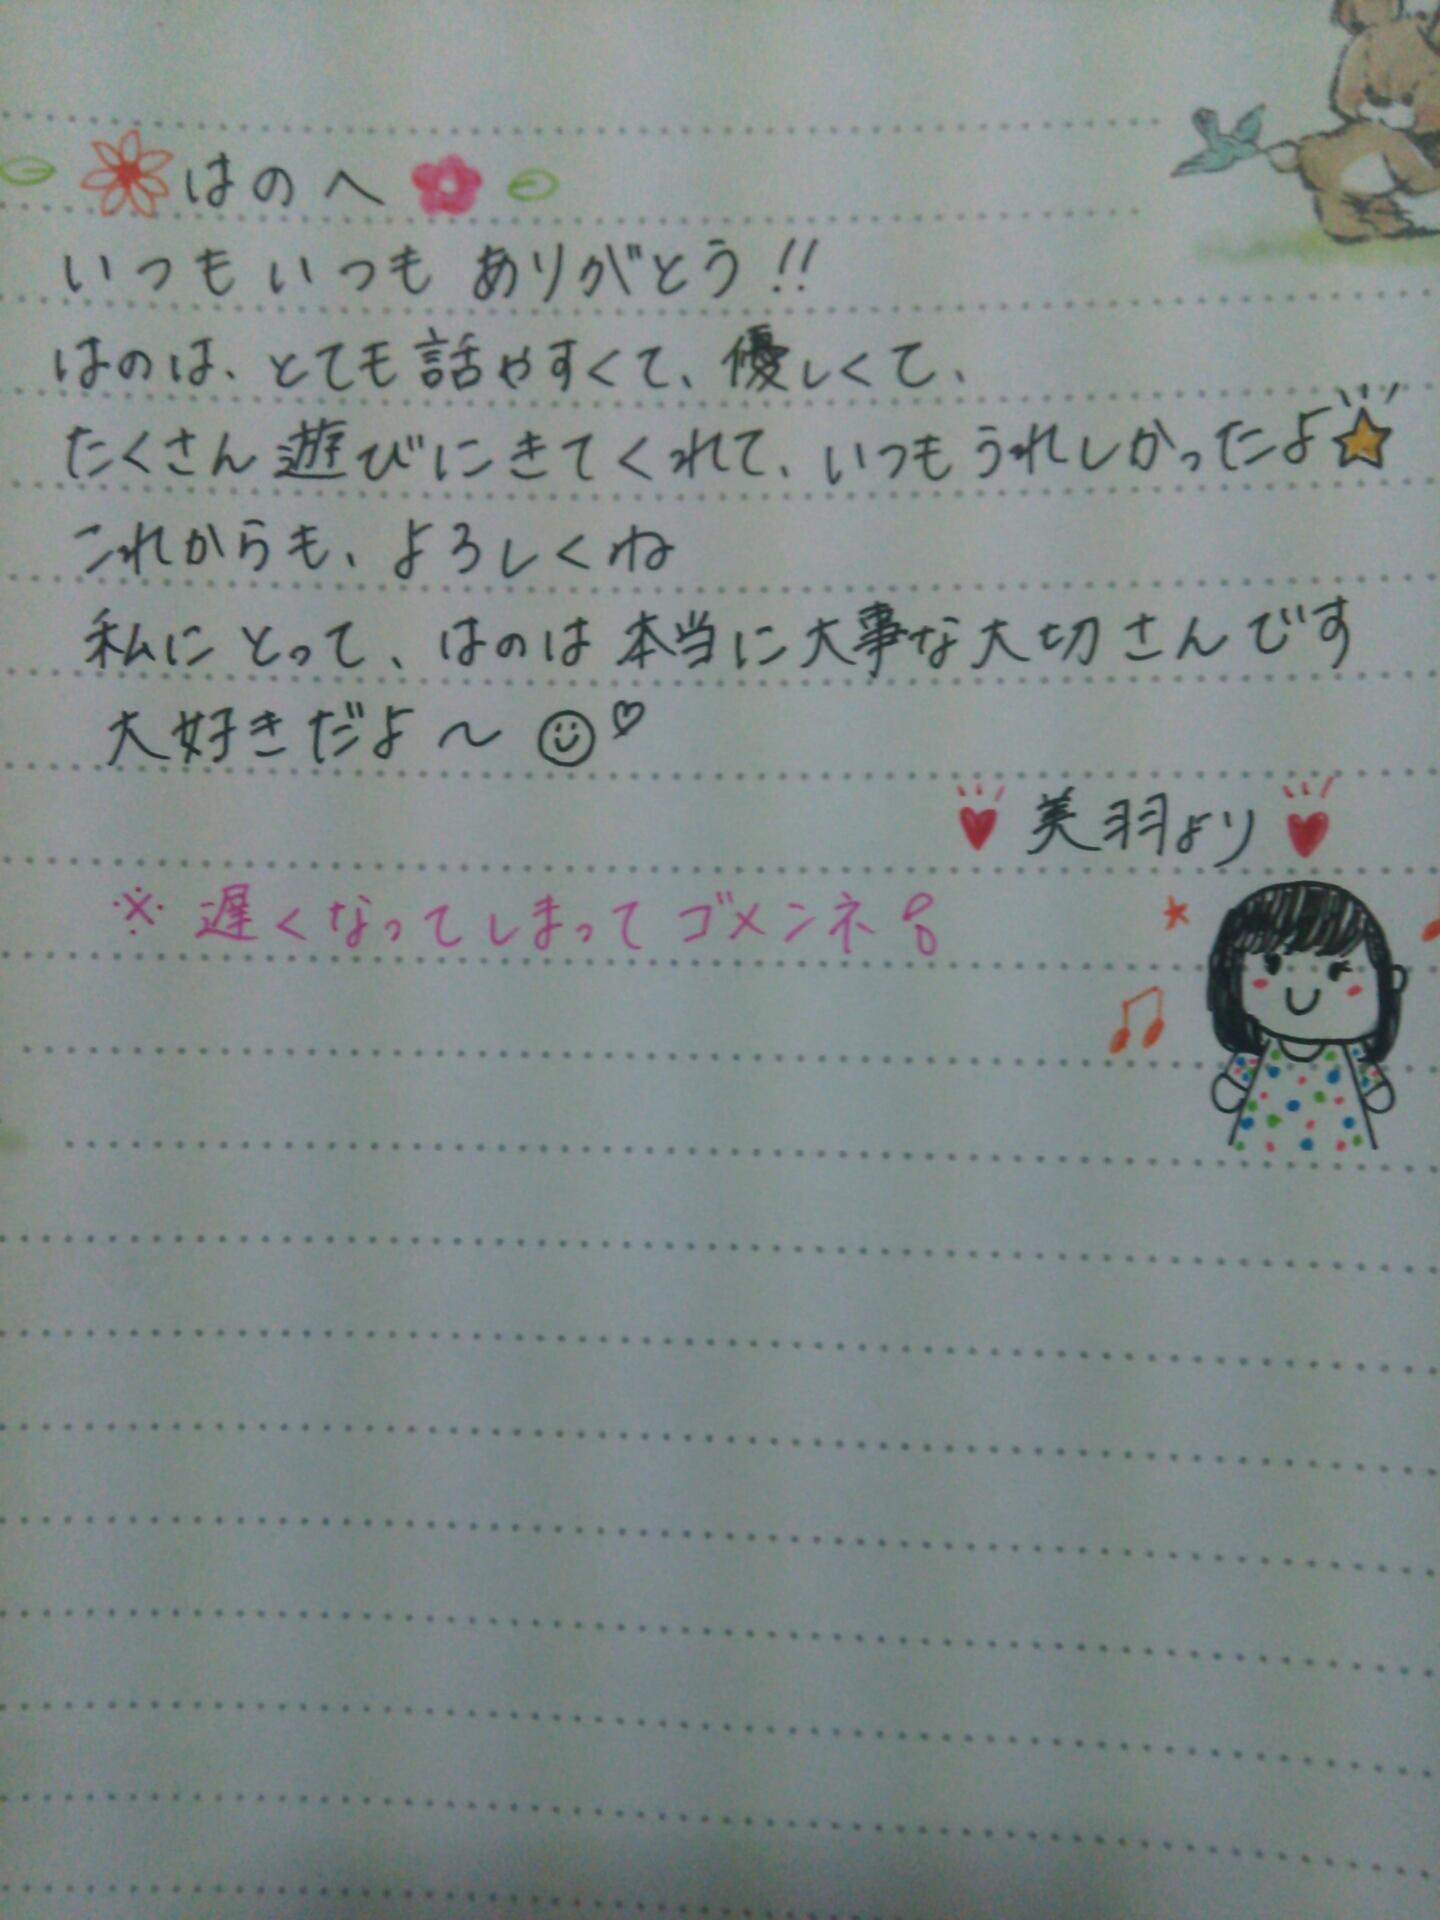 はのへ
いつもいつも ありがとう!!
はのは、とても話やすくて、優しくて、
たくさん遊びにきてくれて、いつもうれしかったよ☆
これからも、よろしくね
私にとって、はのは本当に大事な大切さんです
大好きだよ〜☺♡
♥美羽より♥
※遅くなってしまってゴメンネ